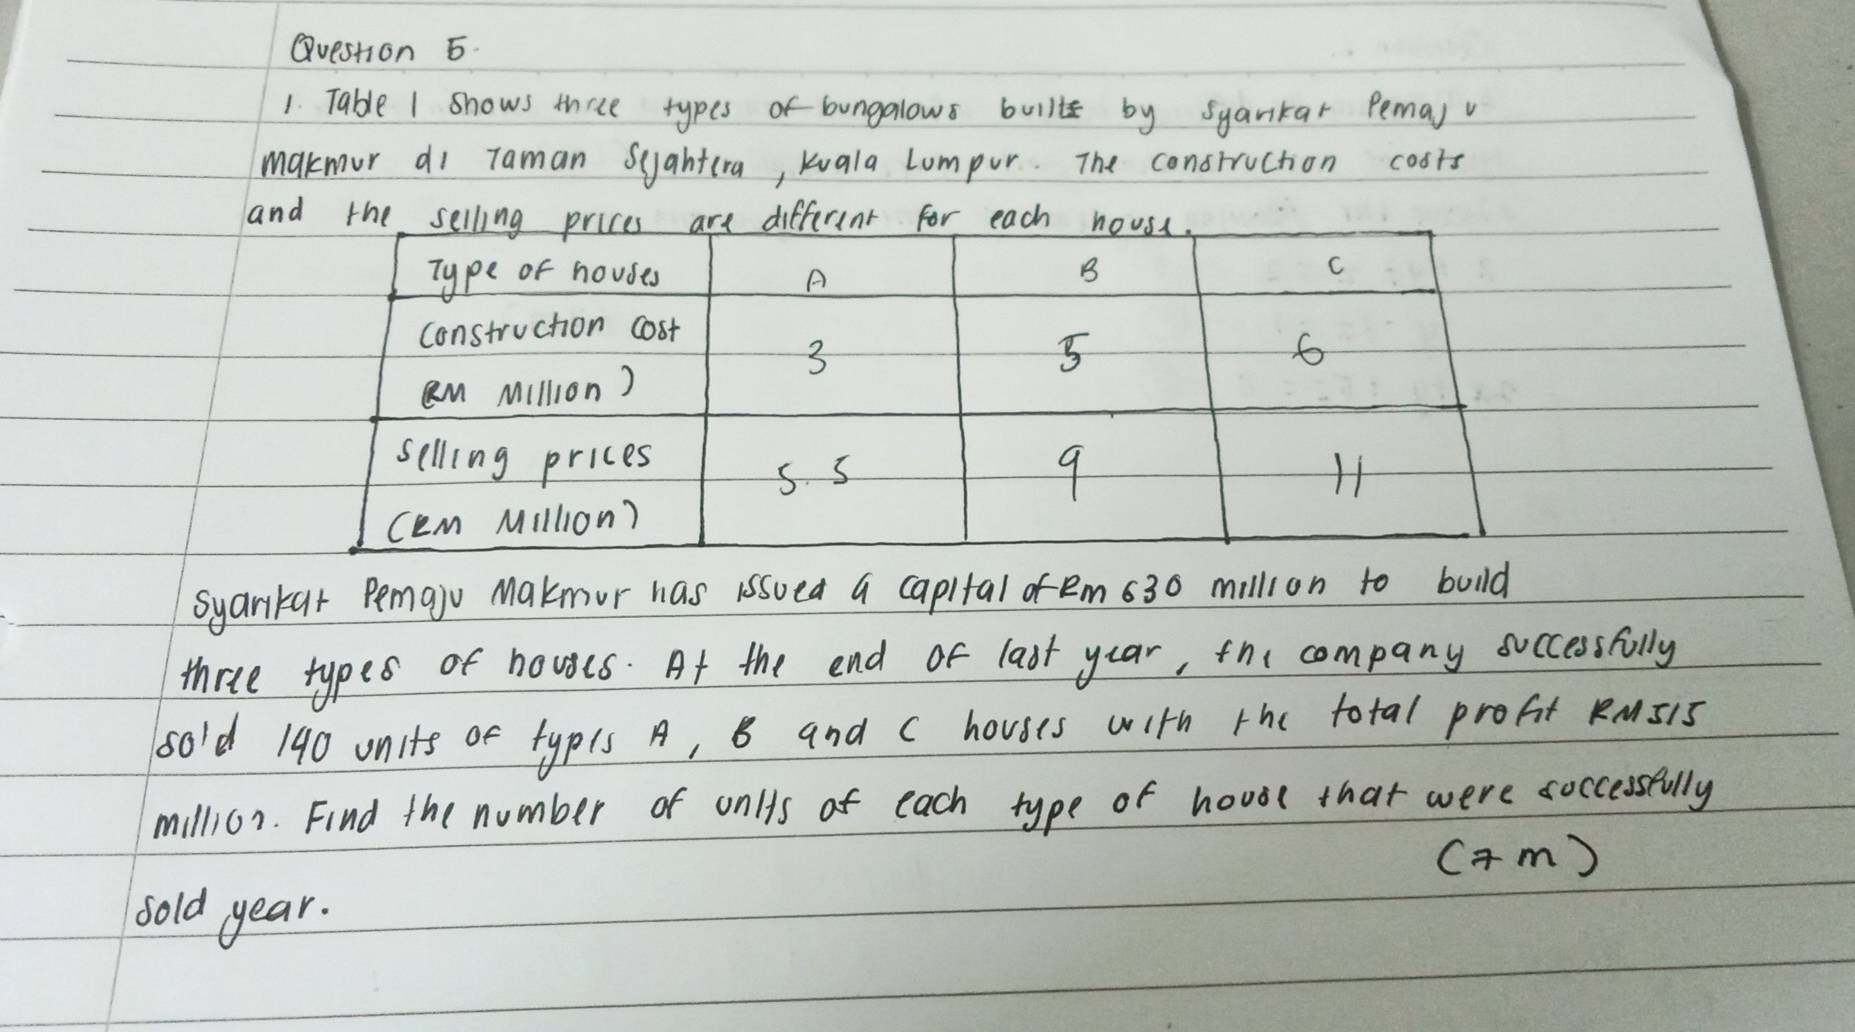 Question 5.
1. Table 1 shows three types of bungalows built by Syarikat Pemaju
makmur di Taman Sejahtera, Kuala Lumpur. The construction costs
and the selling prices are different for each house.
Type of houses A B C
Construction cost
(RM Million) 3 5 6
Selling prices
(RM Million) 5.5 9 11
Syarikat Pemaju Makmur has issued a capital of Rm 630 million to build
three types of houses. At the end of last year, the company successfully
sold 140 units of types A, B and C houses with the total profit RM515
million. Find the number of units of each type of house that were successfully
(7 m)
sold year.